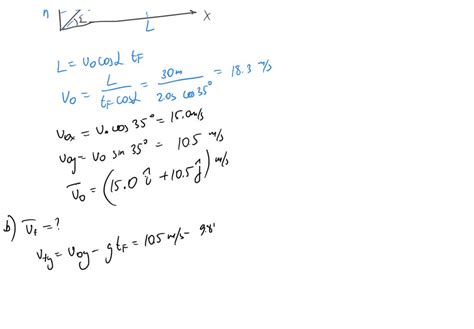 n
L
x
L = v₀ cos α t_F
v₀ = L / (t_F cos α) = 30m / (2.0s cos 35°) = 18.3 m/s
v₀ₓ = v₀ cos 35° = 15.0 m/s
v₀y = v₀ sin 35° = 10.5 m/s
v̄₀ = (15.0 î + 10.5 ĵ) m/s
b) v̄_f = ?
v_fy = v₀y - g t_F = 10.5 m/s - 9.8